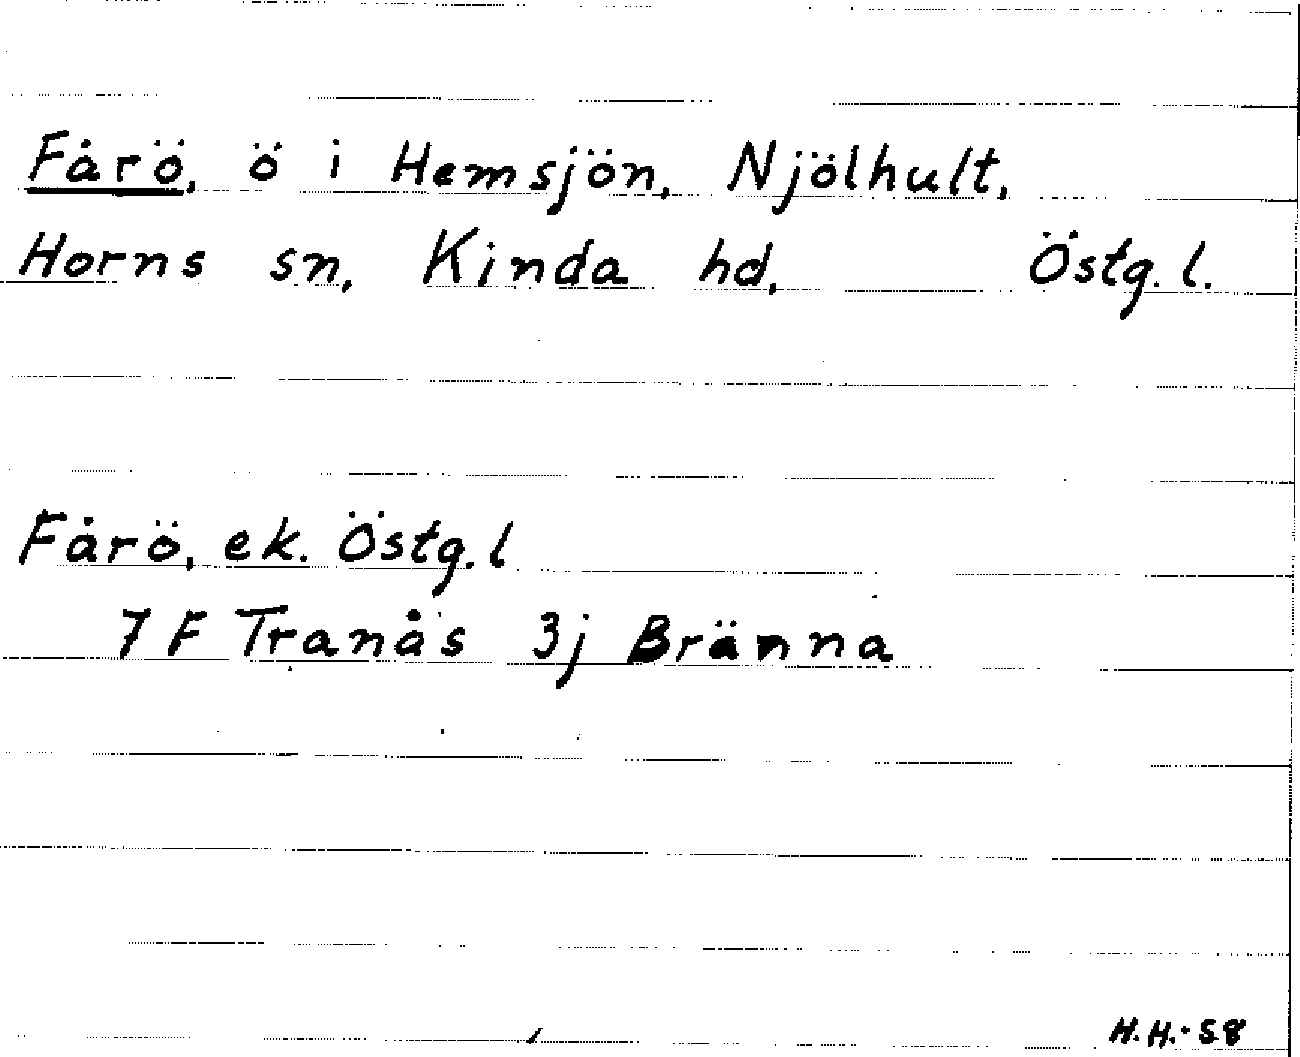 Fårö, ö i Hemsjön, Njölhult,
Horns sn, Kinda hd, Östg. l.
Fårö, ek. Östg. l
7 F Tranås 3j Bränna
H. H. - 58